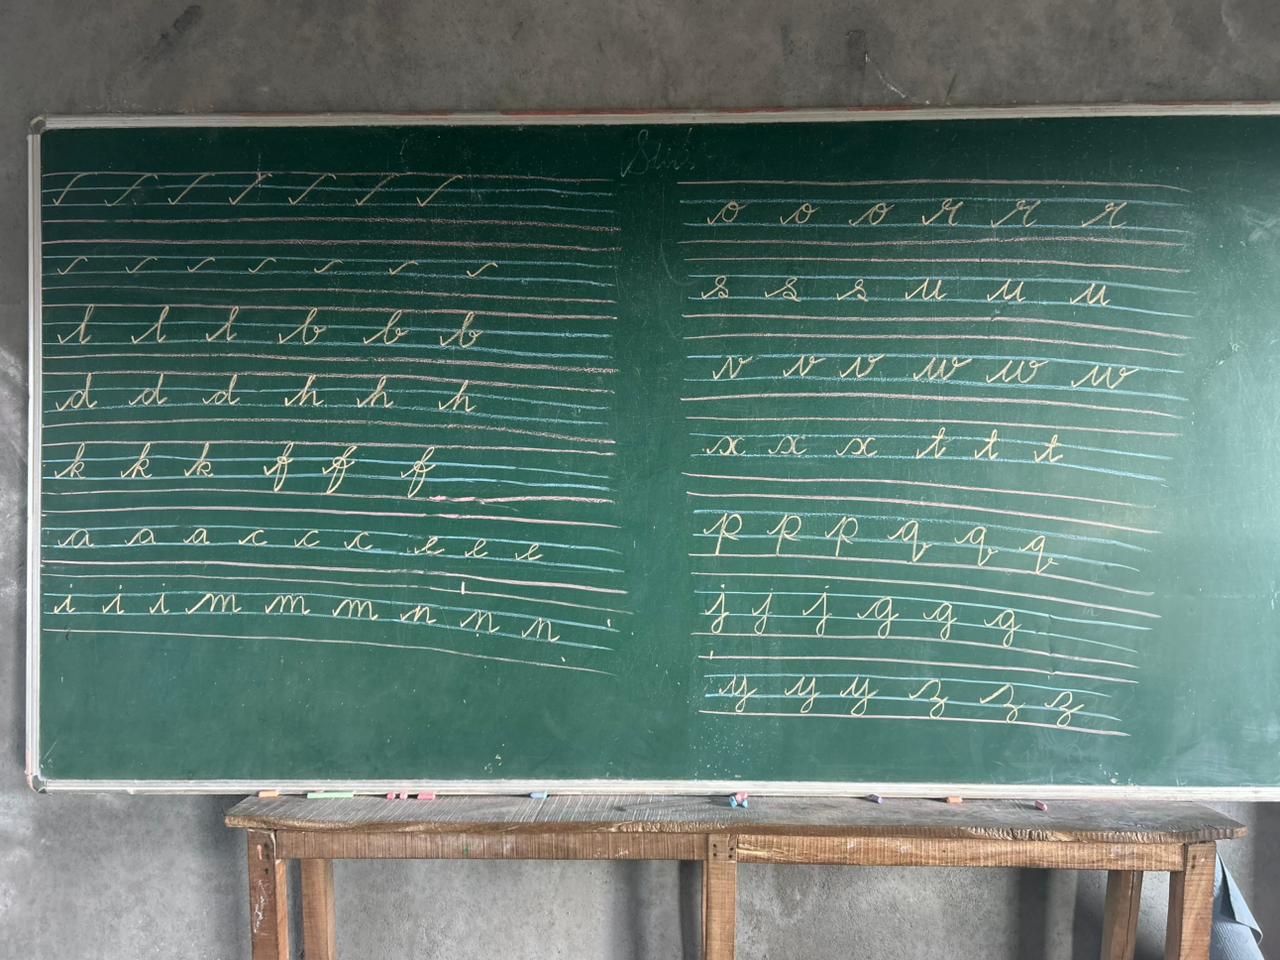 l l l b b b
d d d h h h
k k k f f f
a a a c c c e e e
i i i m m m n n n
o o o r r r
s s s u u u
v v v w w w
x x x t t t
p p p q q q
j j j g g g
y y y z z z